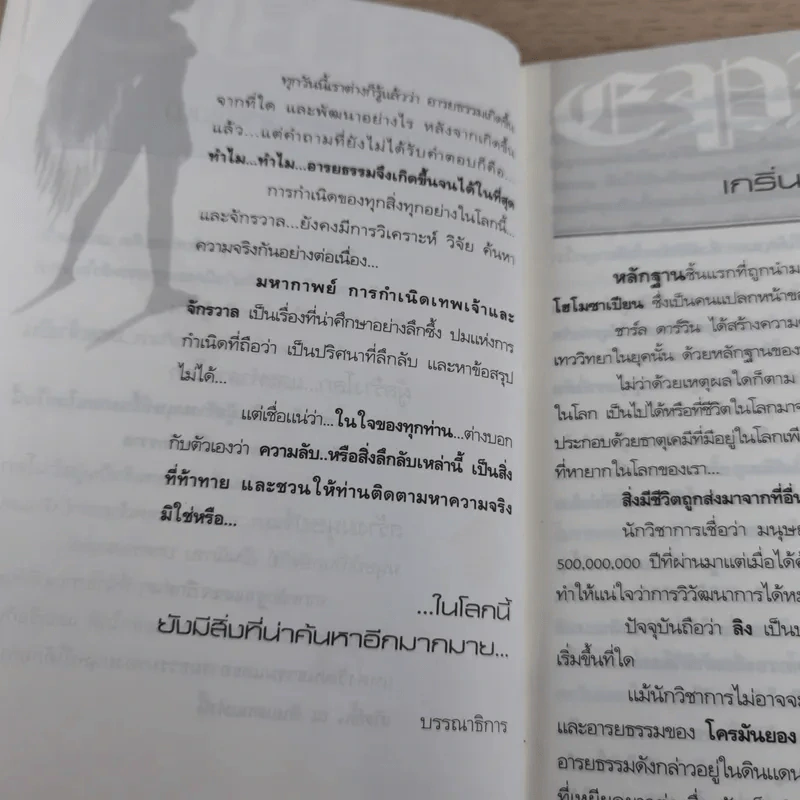 ทุกวันนี้เราต่างก็รู้แล้วว่า อารยธรรมเกิดขึ้น
จากที่ใด และพัฒนาอย่างไร หลังจากเกิดขึ้น
แล้ว...แต่คำถามที่ยังไม่ได้รับคำตอบก็คือ...
ทำไม...ทำไม...อารยธรรมจึงเกิดขึ้นจนได้ในที่สุด
การกำเนิดของทุกสิ่งทุกอย่างในโลกนี้...
และจักรวาล...ยังคงมีการวิเคราะห์ วิจัย ค้นหา
ความจริงกันอย่างต่อเนื่อง...
มหากาพย์ การกำเนิดเทพเจ้าและ
จักรวาล เป็นเรื่องที่น่าศึกษาอย่างลึกซึ้ง ปมแห่งการ
กำเนิดที่ถือว่า เป็นปริศนาที่ลึกลับ และหาข้อสรุป
ไม่ได้...
แต่เชื่อแน่ว่า...ในใจของทุกท่าน...ต่างบอก
กับตัวเองว่า ความลับ..หรือสิ่งลึกลับเหล่านี้ เป็นสิ่ง
ที่ท้าทาย และชวนให้ท่านติดตามหาความจริง
มิใช่หรือ...
...ในโลกนี้
ยังมีสิ่งที่น่าค้นหาอีกมากมาย...
บรรณาธิการ
epi
เกริ่น
หลักฐานชิ้นแรกที่ถูกนำม
โฮโมซาเปียน ซึ่งเป็นคนแปลกหน้าช
ชาร์ล ดาร์วิน ได้สร้างความ
เทววิทยาในยุคนั้น ด้วยหลักฐานของ
ไม่ว่าด้วยเหตุผลใดก็ตาม
ในโลก เป็นไปได้หรือที่ชีวิตในโลกมาจ
ประกอบด้วยธาตุเคมีที่มีอยู่ในโลกเพี
ที่หายากในโลกของเรา...
สิ่งมีชีวิตถูกส่งมาจากที่อื่น
นักวิชาการเชื่อว่า มนุษย
500,000,000 ปีที่ผ่านมาแต่เมื่อได้ค้
ทำให้แน่ใจว่าการวิวัฒนาการได้ห
ปัจจุบันถือว่า ลิง เป็นบ
เริ่มขึ้นที่ใด
แม้นักวิชาการไม่อาจจะ
และอารยธรรมของ โครมันยอง
อารยธรรมดังกล่าวอยู่ในดินแดน